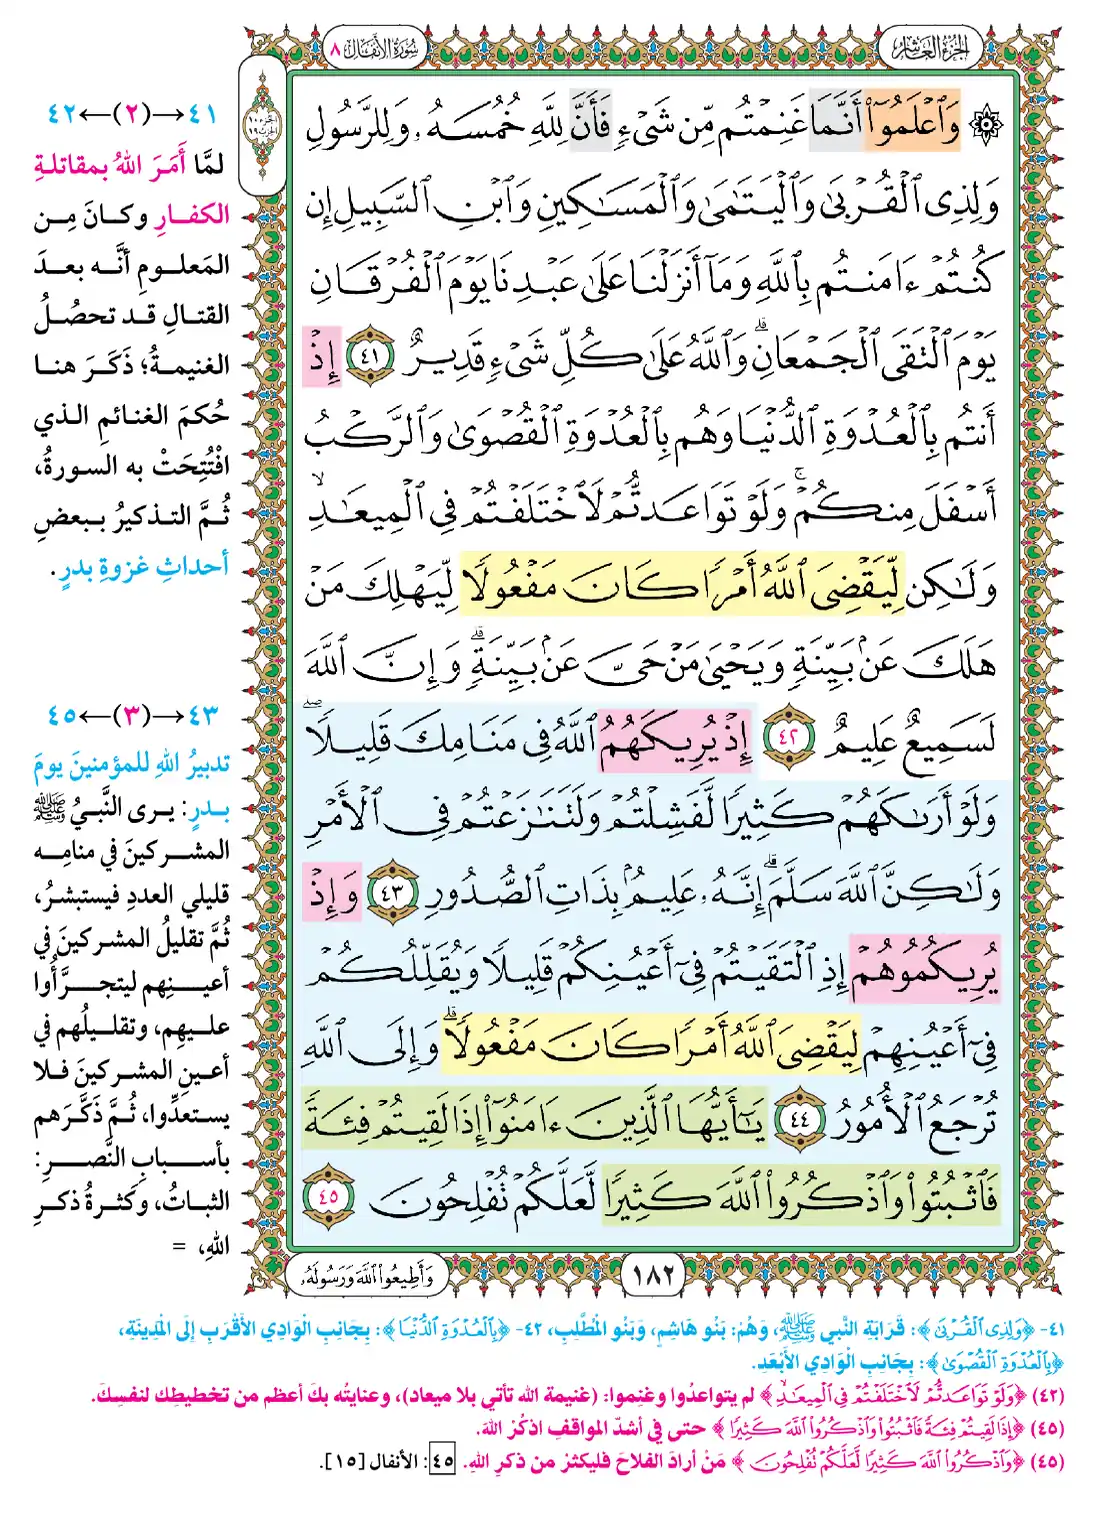 الجزء العاشر
سورة الأنفال ٨
الجزء ١٠
الحزب ١٩
۞ وَٱعۡلَمُوٓاْ أَنَّمَا غَنِمۡتُم مِّن شَيۡءٖ فَأَنَّ لِلَّهِ خُمُسَهُۥ وَلِلرَّسُولِ
وَلِذِي ٱلۡقُرۡبَىٰ وَٱلۡيَتَٰمَىٰ وَٱلۡمَسَٰكِينِ وَٱبۡنِ ٱلسَّبِيلِ إِن
كُنتُمۡ ءَامَنتُم بِٱللَّهِ وَمَآ أَنزَلۡنَا عَلَىٰ عَبۡدِنَا يَوۡمَ ٱلۡفُرۡقَانِ
يَوۡمَ ٱلۡتَقَى ٱلۡجَمۡعَانِۗ وَٱللَّهُ عَلَىٰ كُلِّ شَيۡءٖ قَدِيرٌ ٤١ إِذۡ
أَنتُم بِٱلۡعُدۡوَةِ ٱلدُّنۡيَا وَهُم بِٱلۡعُدۡوَةِ ٱلۡقُصۡوَىٰ وَٱلرَّكۡبُ
أَسۡفَلَ مِنكُمۡۚ وَلَوۡ تَوَاعَدتُّمۡ لَٱخۡتَلَفۡتُمۡ فِي ٱلۡمِيعَٰدِ
وَلَٰكِن لِّيَقۡضِيَ ٱللَّهُ أَمۡرٗا كَانَ مَفۡعُولٗا لِّيَهۡلِكَ مَنۡ
هَلَكَ عَنۢ بَيِّنَةٖ وَيَحۡيَىٰ مَنۡ حَيَّ عَنۢ بَيِّنَةٖۗ وَإِنَّ ٱللَّهَ
لَسَمِيعٌ عَلِيمٌ ٤٢ إِذۡ يُرِيكَهُمُ ٱللَّهُ فِي مَنَامِكَ قَلِيلٗاۖ
وَلَوۡ أَرَىٰكَهُمۡ كَثِيرٗا لَّفَشِلۡتُمۡ وَلَتَنَٰزَعۡتُمۡ فِي ٱلۡأَمۡرِ
وَلَٰكِنَّ ٱللَّهَ سَلَّمَۗ إِنَّهُۥ عَلِيمُۢ بِذَاتِ ٱلصُّدُورِ ٤٣ وَإِذۡ
يُرِيكُمُوهُمۡ إِذِ ٱلۡتَقَيۡتُمۡ فِيٓ أَعۡيُنِكُمۡ قَلِيلٗا وَيُقَلِّلُكُمۡ
فِيٓ أَعۡيُنِهِمۡ لِيَقۡضِيَ ٱللَّهُ أَمۡرٗا كَانَ مَفۡعُولٗاۗ وَإِلَى ٱللَّهِ
تُرۡجَعُ ٱلۡأُمُورُ ٤٤ يَٰٓأَيُّهَا ٱلَّذِينَ ءَامَنُوٓاْ إِذَا لَقِيتُمۡ فِئَةٗ
فَٱثۡبُتُواْ وَٱذۡكُرُواْ ٱللَّهَ كَثِيرٗا لَّعَلَّكُمۡ تُفۡلِحُونَ ٤٥
١٨٢
وَأَطِيعُواْ ٱللَّهَ وَرَسُولَهُۥ
٤١→(٢)←٤٢
لمَّا أَمَرَ اللهُ بمقاتلةِ
الكفارِ وكانَ مِن
المَعلومِ أنَّه بعدَ
القتالِ قد تحصُلُ
الغنيمةُ؛ ذَكَرَ هنا
حُكمَ الغنائمِ الذي
افْتُتِحَتْ به السورةُ،
ثُمَّ التذكيرُ ببعضِ
أحداثِ غزوةِ بدرٍ.
٤٣→(٣)←٤٥
تدبيرُ اللهِ للمؤمنينَ يومَ
بدرٍ: يرى النَّبيُ ﷺ
المشركينَ في منامِه
قليلي العددِ فيستبشرُ،
ثُمَّ تقليلُ المشركينَ في
أعينِهم ليتجرَّأُوا
عليهِم، وتقليلُهم في
أعينِ المشركينَ فلا
يستعدِّوا، ثُمَّ ذَكَّرَهم
بأسبابِ النَّصرِ:
الثباتُ، وكثرةُ ذكرِ
اللهِ، =
٤١- ﴿وَلِذِي ٱلۡقُرۡبَىٰ﴾: قَرَابَةِ النَّبِي ﷺ، وَهُمْ: بَنُو هَاشِمٍ، وَبَنُو الْمُطَّلِبِ، ٤٢- ﴿بِٱلۡعُدۡوَةِ ٱلدُّنۡيَا﴾: بِجَانِبِ الْوَادِي الأَقْرَبِ إِلَى الْمَدِينَةِ،
﴿بِٱلۡعُدۡوَةِ ٱلۡقُصۡوَىٰ﴾: بِجَانِبِ الْوَادِي الأَبْعَدِ.
(٤٢) ﴿وَلَوۡ تَوَاعَدتُّمۡ لَٱخۡتَلَفۡتُمۡ فِي ٱلۡمِيعَٰدِ﴾ لم يتواعدُوا وغنِموا: (غنيمة الله تأتي بلا ميعاد)، وعنايتُه بكَ أعظم من تخطيطِك لنفسِكَ.
(٤٥) ﴿إِذَا لَقِيتُمۡ فِئَةٗ فَٱثۡبُتُواْ وَٱذۡكُرُواْ ٱللَّهَ كَثِيرٗا﴾ حتى في أشدِّ المواقفِ اذكُرْ اللهَ.
(٤٥) ﴿وَٱذۡكُرُواْ ٱللَّهَ كَثِيرٗا لَّعَلَّكُمۡ تُفۡلِحُونَ﴾ مَنْ أرادَ الفلاحَ فليكثرْ من ذكرِ اللهِ. ٤٥: الأنفال [١٥].